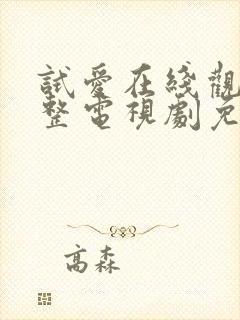 試愛在綫觀
整電視劇免
高森